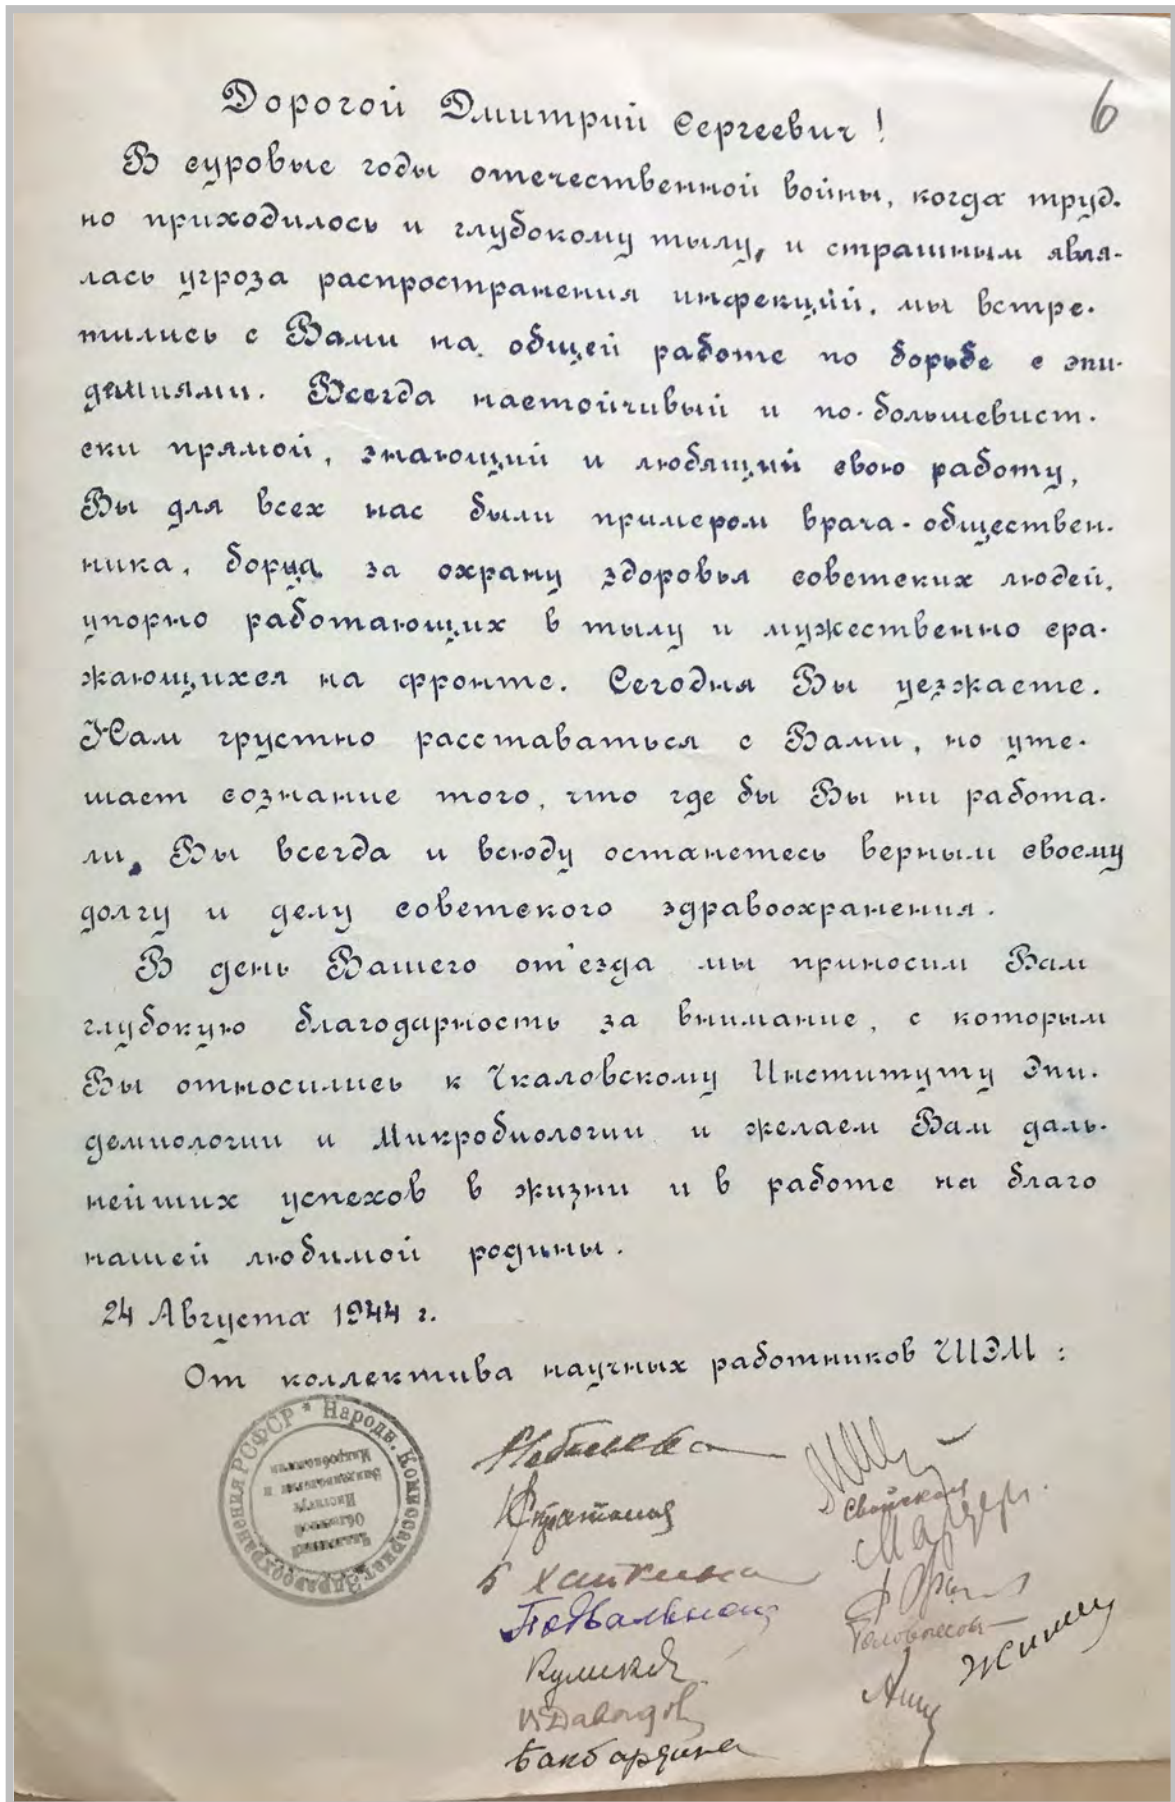 6
Дорогой Дмитрий Сергеевич!
В суровые годы отечественной войны, когда труд-
но приходилось и глубокому тылу, и страшным явля-
лась угроза распространения инфекций, мы встре-
тились с Вами на общей работе по борьбе с эпи-
демиями. Всегда настойчивый и по-большевист-
ски прямой, знающий и любящий свою работу,
Вы для всех нас были примером врача-обществен-
ника, борца за охрану здоровья советских людей,
упорно работающих в тылу и мужественно сра-
жающихся на фронте. Сегодня Вы уезжаете.
Нам грустно расставаться с Вами, но уте-
шает сознание того, что где бы Вы ни работа-
ли, Вы всегда и всюду останетесь верным своему
долгу и делу советского здравоохранения.
В день Вашего от'езда мы приносим Вам
глубокую благодарность за внимание, с которым
Вы относились к Чкаловскому Институту Эпи-
демиологии и Микробиологии и желаем Вам даль-
нейших успехов в жизни и в работе на благо
нашей любимой родины.
24 Августа 1944 г.
От коллектива научных работников ЧИЭМ:
Народн. Комиссариат Здравоохранения РСФСР *
Чкаловский
Областной
Институт
Эпидемиологии и
Микробиологии
Б Хайкина
Подвальная
Куликов
Давыдов